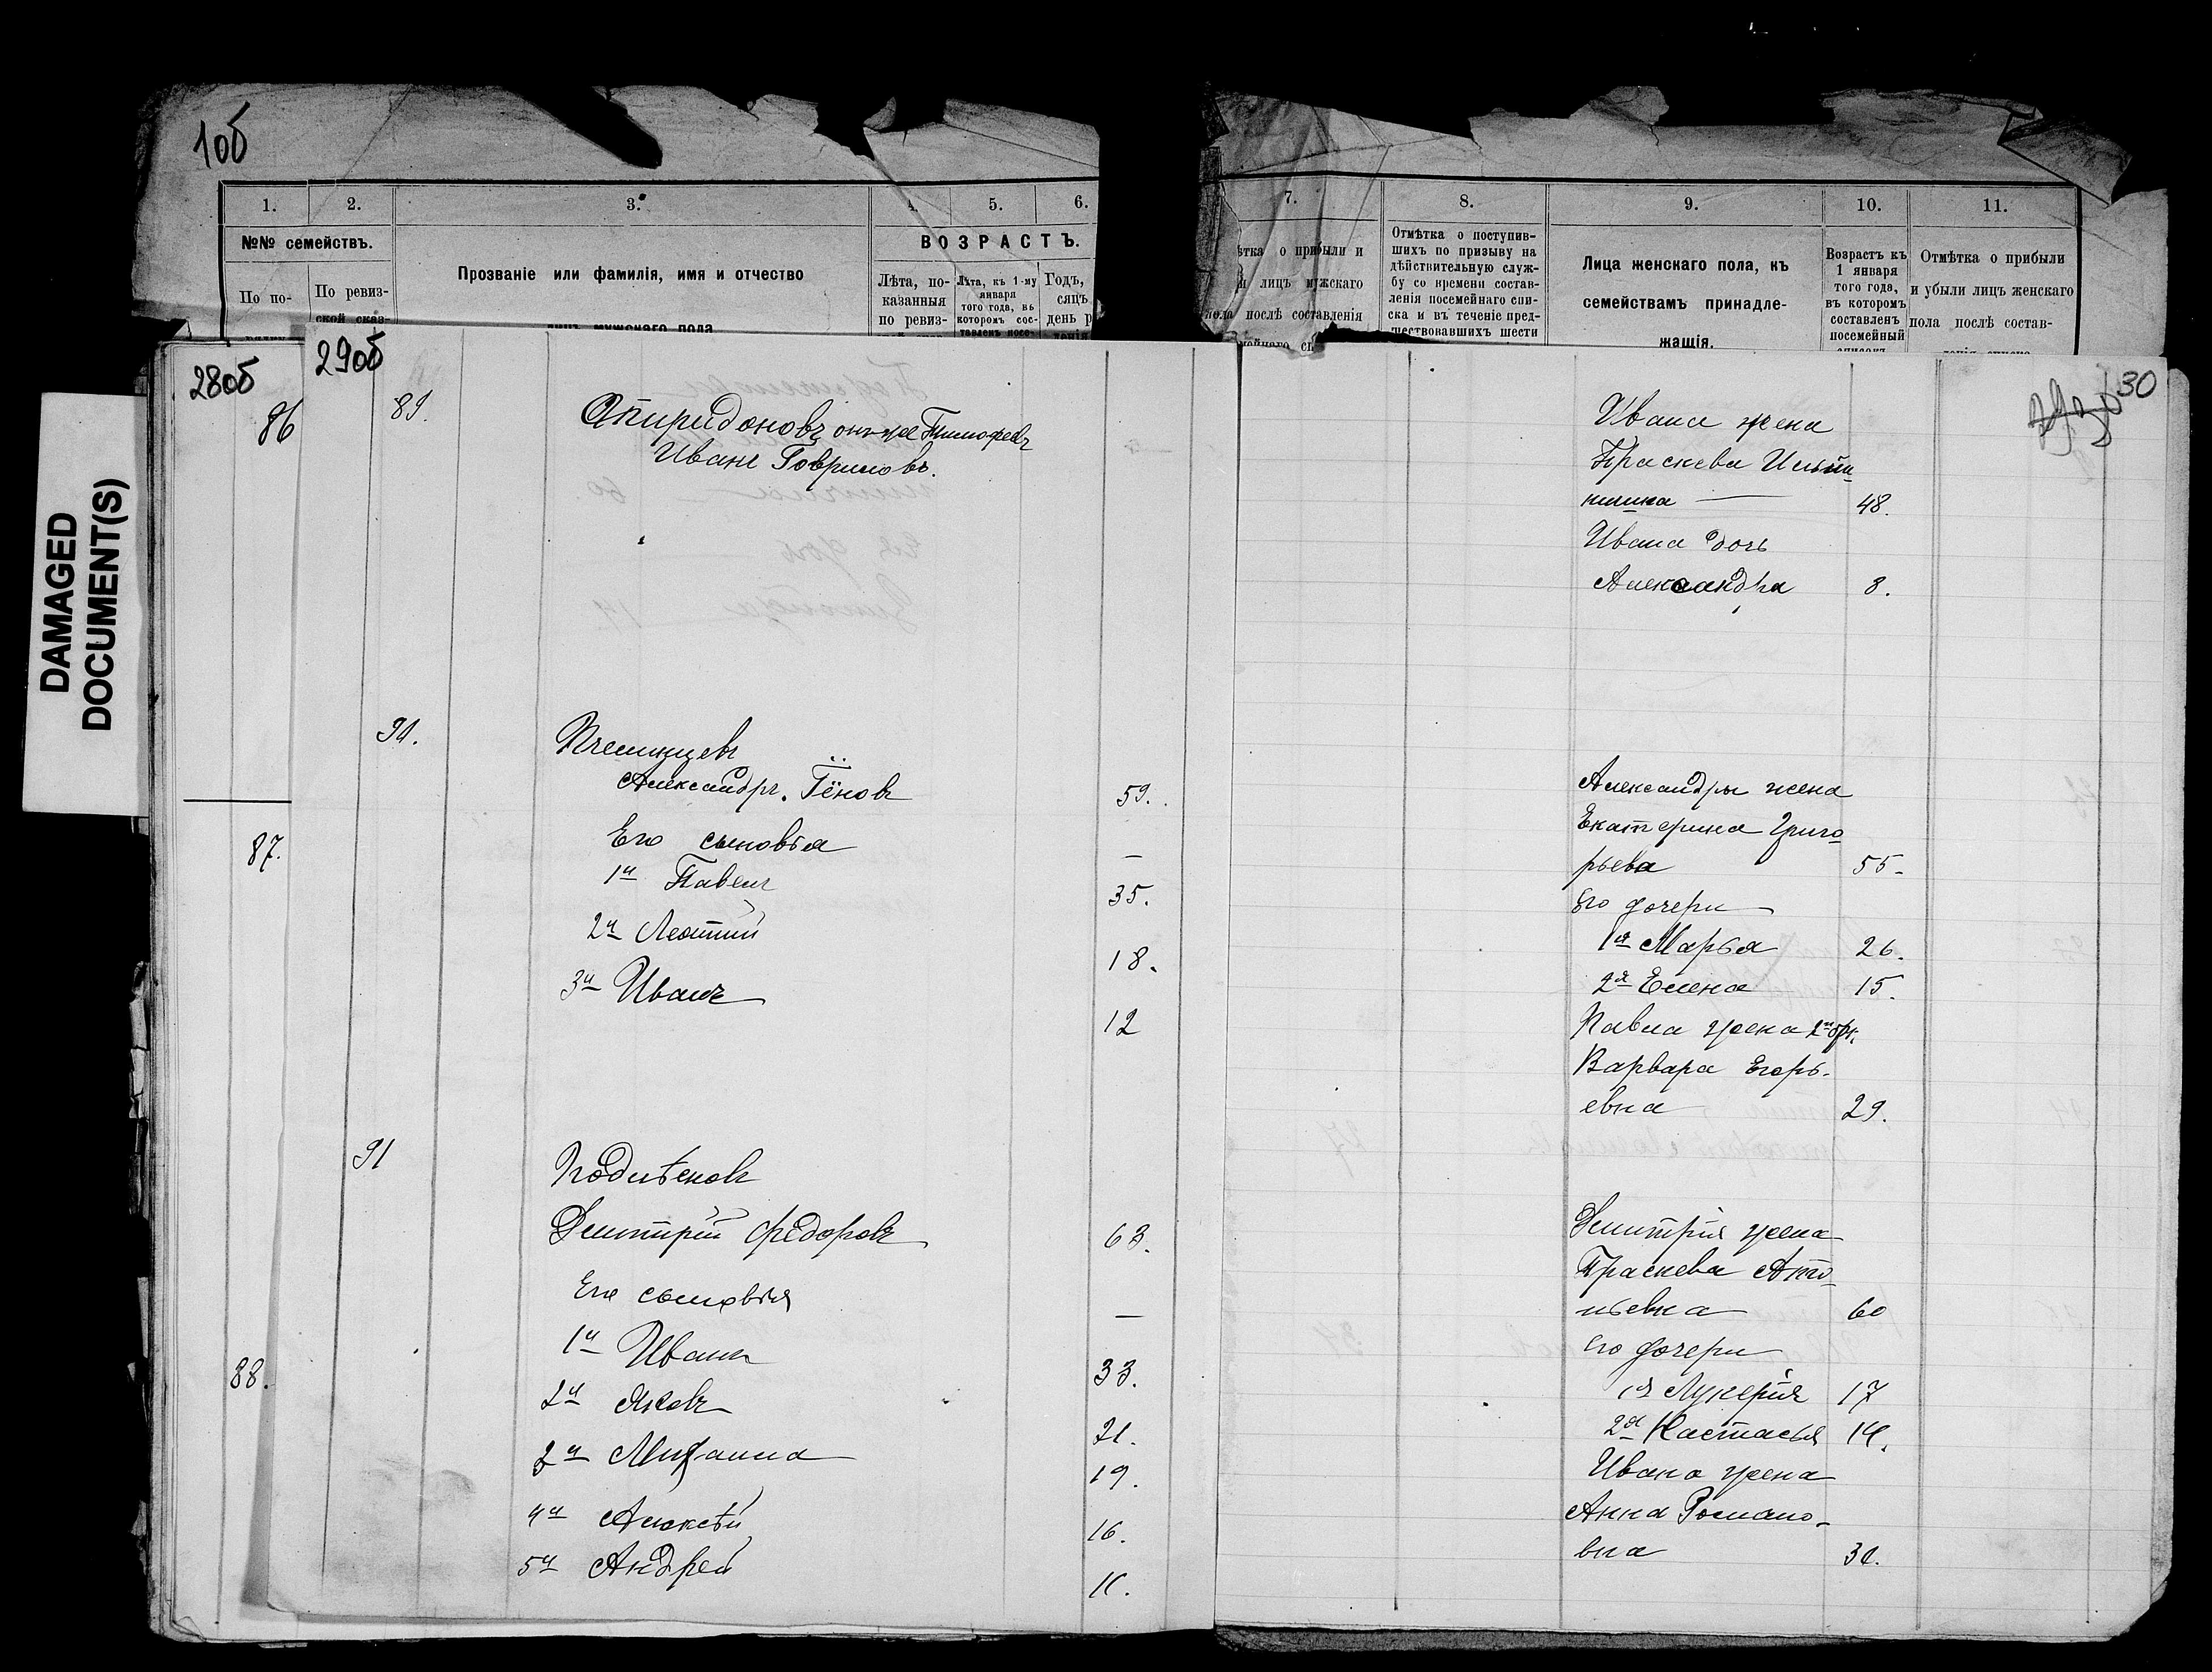 10б
1.
2.
3.
4.
5.
6.
№№ семействъ.
Прозваніе или фамилія, имя и отчество
ВОЗРАСТЪ.
По по-
По ревиз-
ской сказ-
лицъ мужского пола
Лѣта, по-
казанныя
по ревиз-
Лѣта, къ 1-му
января
того года, въ
которомъ сос-
тавленъ посе-
Годъ,
сяцъ
день р
7.
8.
9.
10.
11.
ѣтка о прибыли и
лицъ мужскаго
пола послѣ составленія
мейнаго сп
Отмѣтка о поступив-
шихъ по призыву на
дѣйствительную служ-
бу со времени состав-
ленія посемейнаго спи-
ска и въ теченіе пред-
шествовавшихъ шести
Лица женскаго пола, къ
семействамъ принадле-
жащія.
Возрастъ къ
1 января
того года,
въ которомъ
составленъ
посемейный
Отмѣтка о прибыли
и убыли лицъ женскаго
пола послѣ состав-
DAMAGED
DOCUMENT(S)
28об
29об
86
89.
Спиридоновъ онъ же Тимофеевъ
Иванъ Говриловъ.
90.
Пчелинцевъ
Александръ. Гёновъ 59.
87.
Его сыновья —
1й Павелъ 35.
2й Леонтий 18.
3й Иванъ 12
91
Подлѣсновъ
Дмитрій Федоровъ 63.
Его сыновья —
88.
1й Иванъ 33.
2й Яковъ 21.
3й Михаила 19.
4й Алексѣй 16.
5й Андрей 11.
30
Ивана жена
Праскева Ильи-
нична — 48.
Ивана дочь
Александра 8.
Александры жена
Екатерина Григо-
рьева 55.
Его дочери
1я Марья 26.
2я Елена 15.
Павла жена 2й бр.
Варвара Егорь-
евна 29.
Дмитрія жена
Праскева Анто-
ньевна 60
Его дочери
1я Лукерія 17
2я Настасья 14.
Ивана жена
Анна Романо-
вна 31.